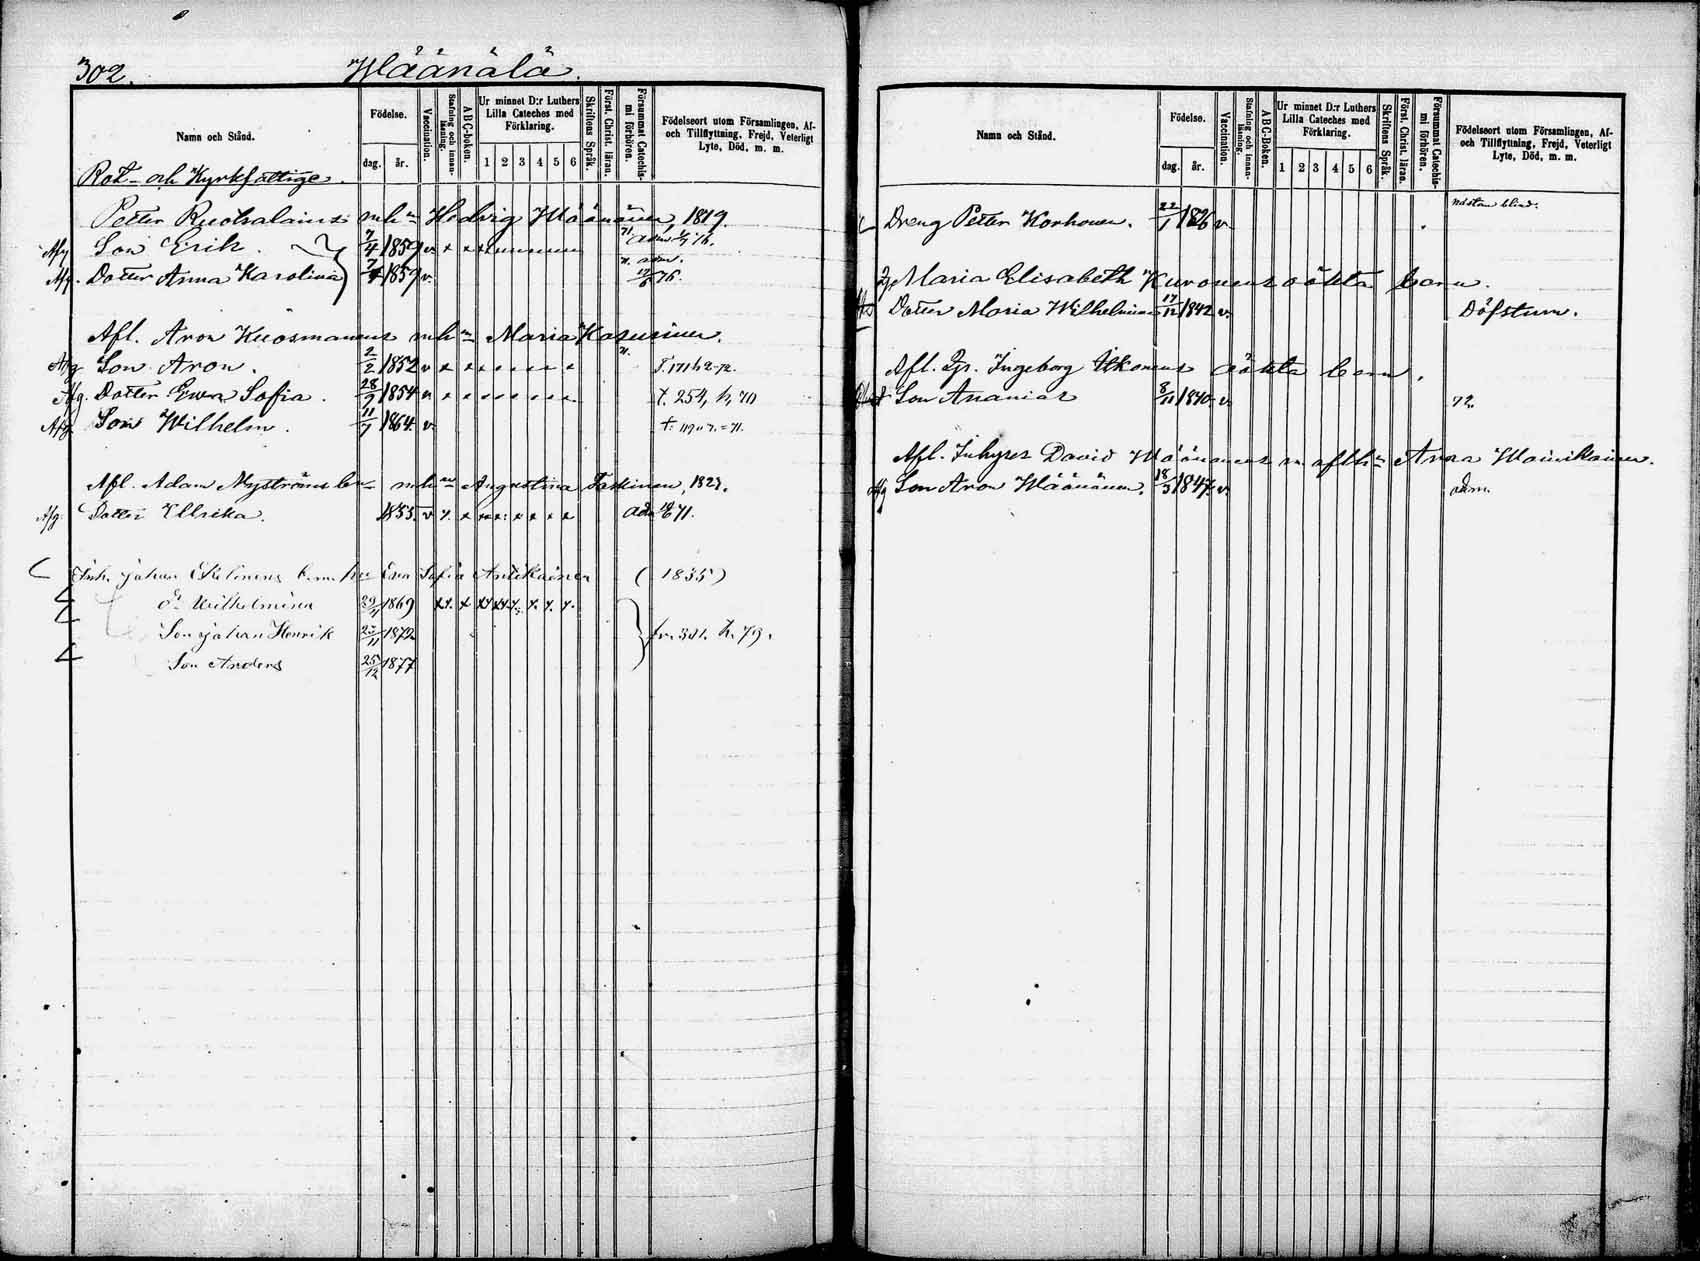 302.
Wäänälä.
Namn och Stånd.
Födelse.
dag.
år.
Vaccination.
Stafning och innan-läsning.
A B C-boken.
Ur minnet D:r Luthers Lilla Cateches med Förklaring.
1 2 3 4 5 6
Skriftens Språk.
Först. Christ. läran.
Försummat Catechis-mi förhören.
Födelseort utom Församlingen, Af- och Tillflyttning, Frejd, Veterligt Lyte, Död, m. m.
Rot- och Kyrkfattige.
Petter Ruotsalains enka Hedvig Wäänänen, 1819.
Afg Son Erik. 7/4 1859 v x x x
Afg. Dotter Anna Karolina 7/4 1859 v. 76.
Afl. Aron Kuosmanens enka Maria Kasurinen.
Afg Son Aron. 2/2 1852 v x x x x x x x x
Afg. Dotter Ewa Sofia. 28/9 1854 v x x x x x x x x t. 254, 70
Afg. Son Wilhelm. 11/7 1864. v. 71.
Afl. Adam Nyströms Augustina Taskinen, 1827.
Afg. Dotter Ulrika. 1855. v x x x x x x x x 71.
Inh. Johan Eskelinens Ewa Sofia Antikainen (1835)
dr Wilhelmina 29/11 1869
Son Johan Henrik 1872 fr. 301. 79.
Son Anders 25/12 1877
Namn och Stånd.
Födelse.
dag.
år.
Vaccination.
Stafning och innan-läsning.
A B C-Boken.
Ur minnet D:r Luthers Lilla Cateches med Förklaring.
1 2 3 4 5 6
Skriftens Språk.
Först. Christ. läran.
Försummat Catechis-mi förhören.
Födelseort utom Församlingen, Af- och Tillflyttning, Frejd, Veterligt Lyte, Död, m. m.
Dreng Petter Korhonen. 22/1 1826 v. nästan blind.
Maria Elisabeth Kuronens oäkta barn.
Dotter Maria Wilhelmina 17/12 1842 v. Döfstum.
Afl. Ingeborg Ikonens oäkta barn.
Son Ananias 8/11 1840. v. 72.
Afl. Inhyses David Wäänänens Anna Wainikainen.
Afg Son Aron Wäänänen. 18/3 1847. v.